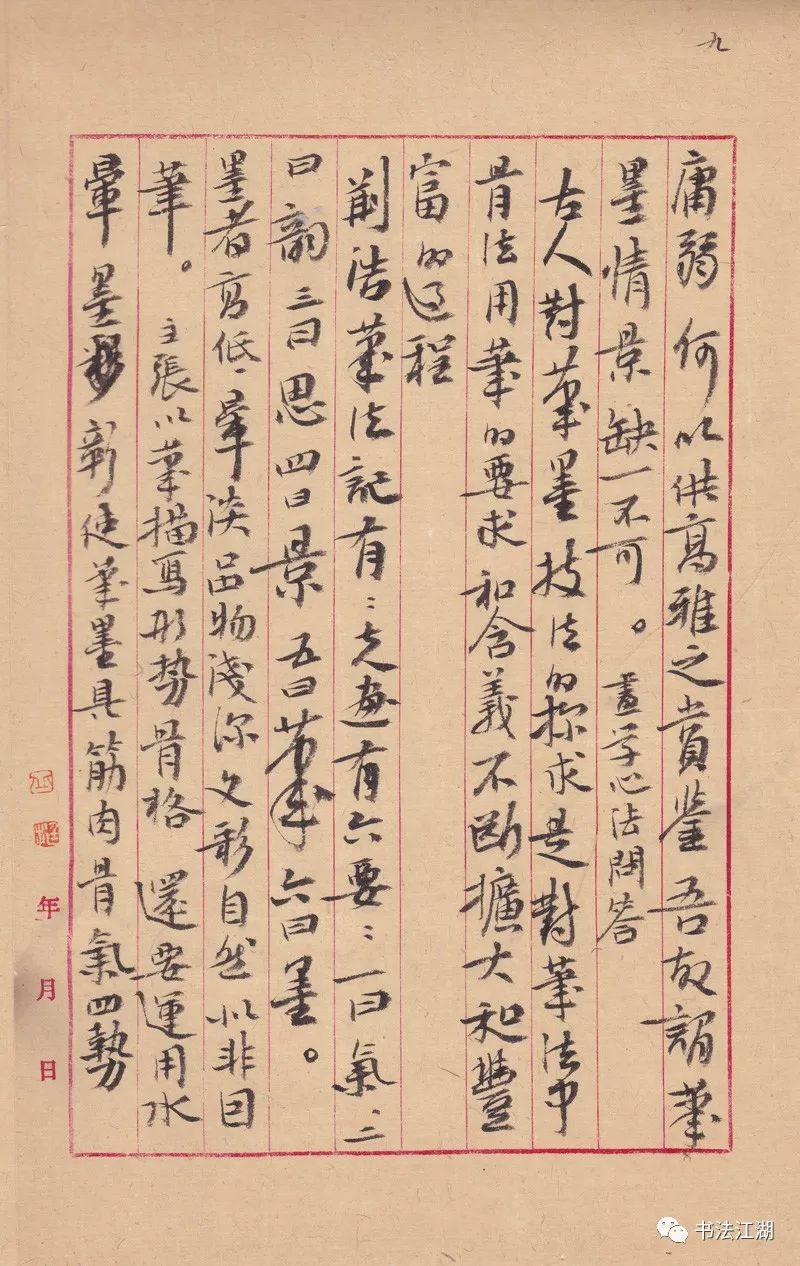 九
庸弱何以供高雅之賞鑒吾故謂筆
墨情景缺一不可。畫学心法問答
古人對筆墨技法的探求是對筆法中
骨法用筆的要求和含義不斷擴大和豐
富的过程
荆浩筆法記有：夫画有六要：一曰氣、二
曰韵三曰思四曰景五曰筆六曰墨。
墨者高低、暈淡品物淺深文彩自然似非因
筆。主張以筆描寫形勢骨格還要運用水
暈墨彰使筆墨具筋肉骨氣四勢
年 月 日
书法江湖